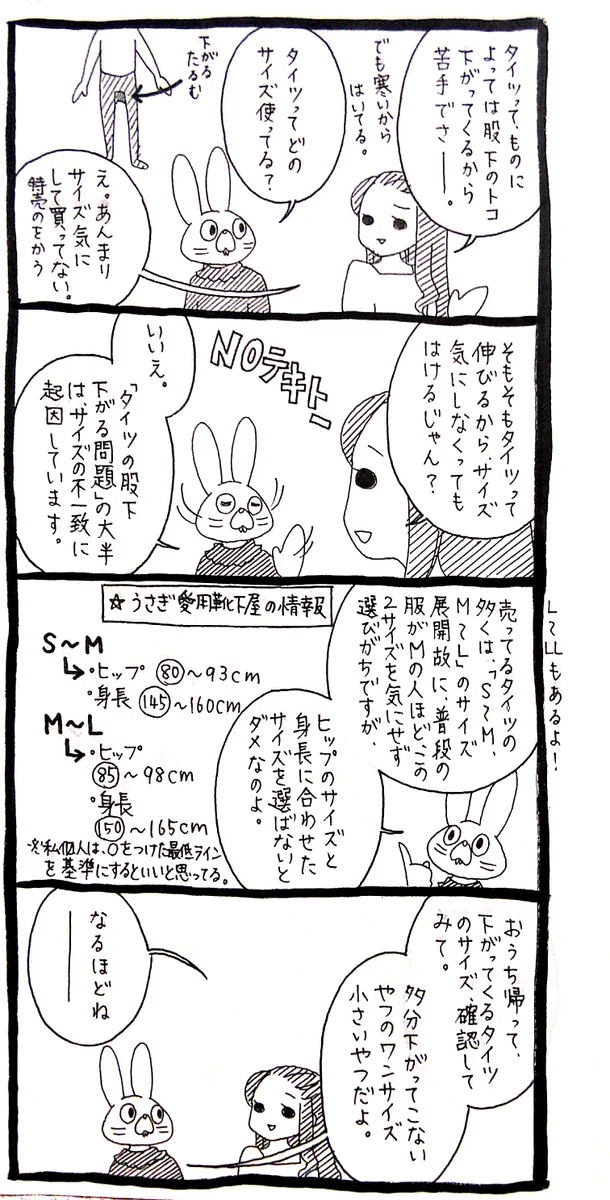 タイツって、ものに
よっては股下のトコ
下がってくるから
苦手でさ――。
でも寒いから
はいてる。
タイツってどの
サイズ使ってる？
下がる
たるむ
え。あんまり
サイズ気に
して買ってない。
特売のをかう
そもそもタイツって
伸びるから、サイズ
気にしなくっても
はけるじゃん？
NOテキトー
いいえ。
「タイツの股下
下がる問題」の大半
はサイズの不一致に
起因しています。
売ってるタイツの
多くは、「S〜M、
M〜L」のサイズ
展開故に、普段の
服がMの人ほど、この
2サイズを気にせず
選びがちですが、
L〜LLもあるよ！
ヒップのサイズと
身長に合わせた
サイズを選ばないと
ダメなのよ。
☆うさぎ愛用靴下屋の情報
S〜M
・ヒップ 80〜93cm
・身長 145〜160cm
M〜L
・ヒップ
85〜98cm
・身長
150〜165cm
※私個人は、○をつけた最低ライン
を基準にするといいと思ってる。
おうち帰って、
下がってくるタイツ
のサイズ、確認して
みて。
多分下がってこない
やつのワンサイズ
小さいやつだよ。
なるほどね
――